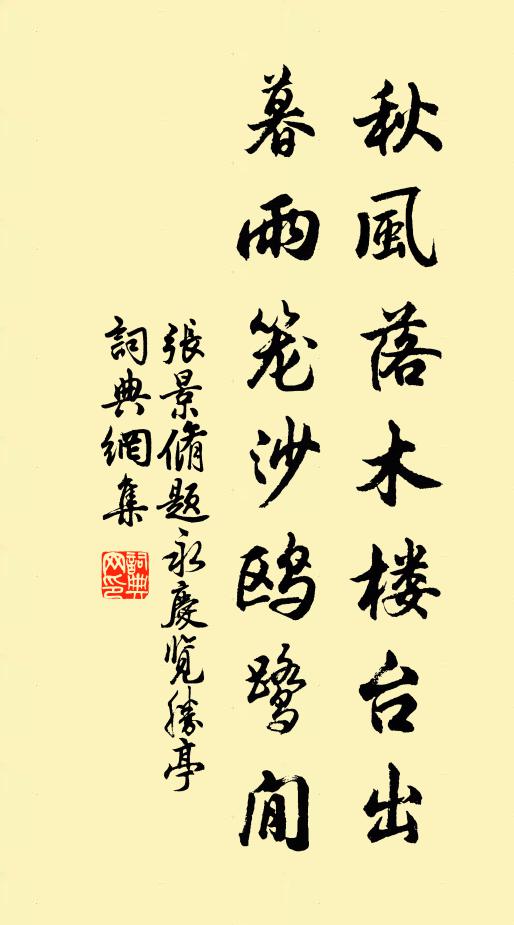 秋風落木楼台出
暮雨笼沙鸥鹭閒
張景脩题永慶览勝亭
詞典網集
詞典网印